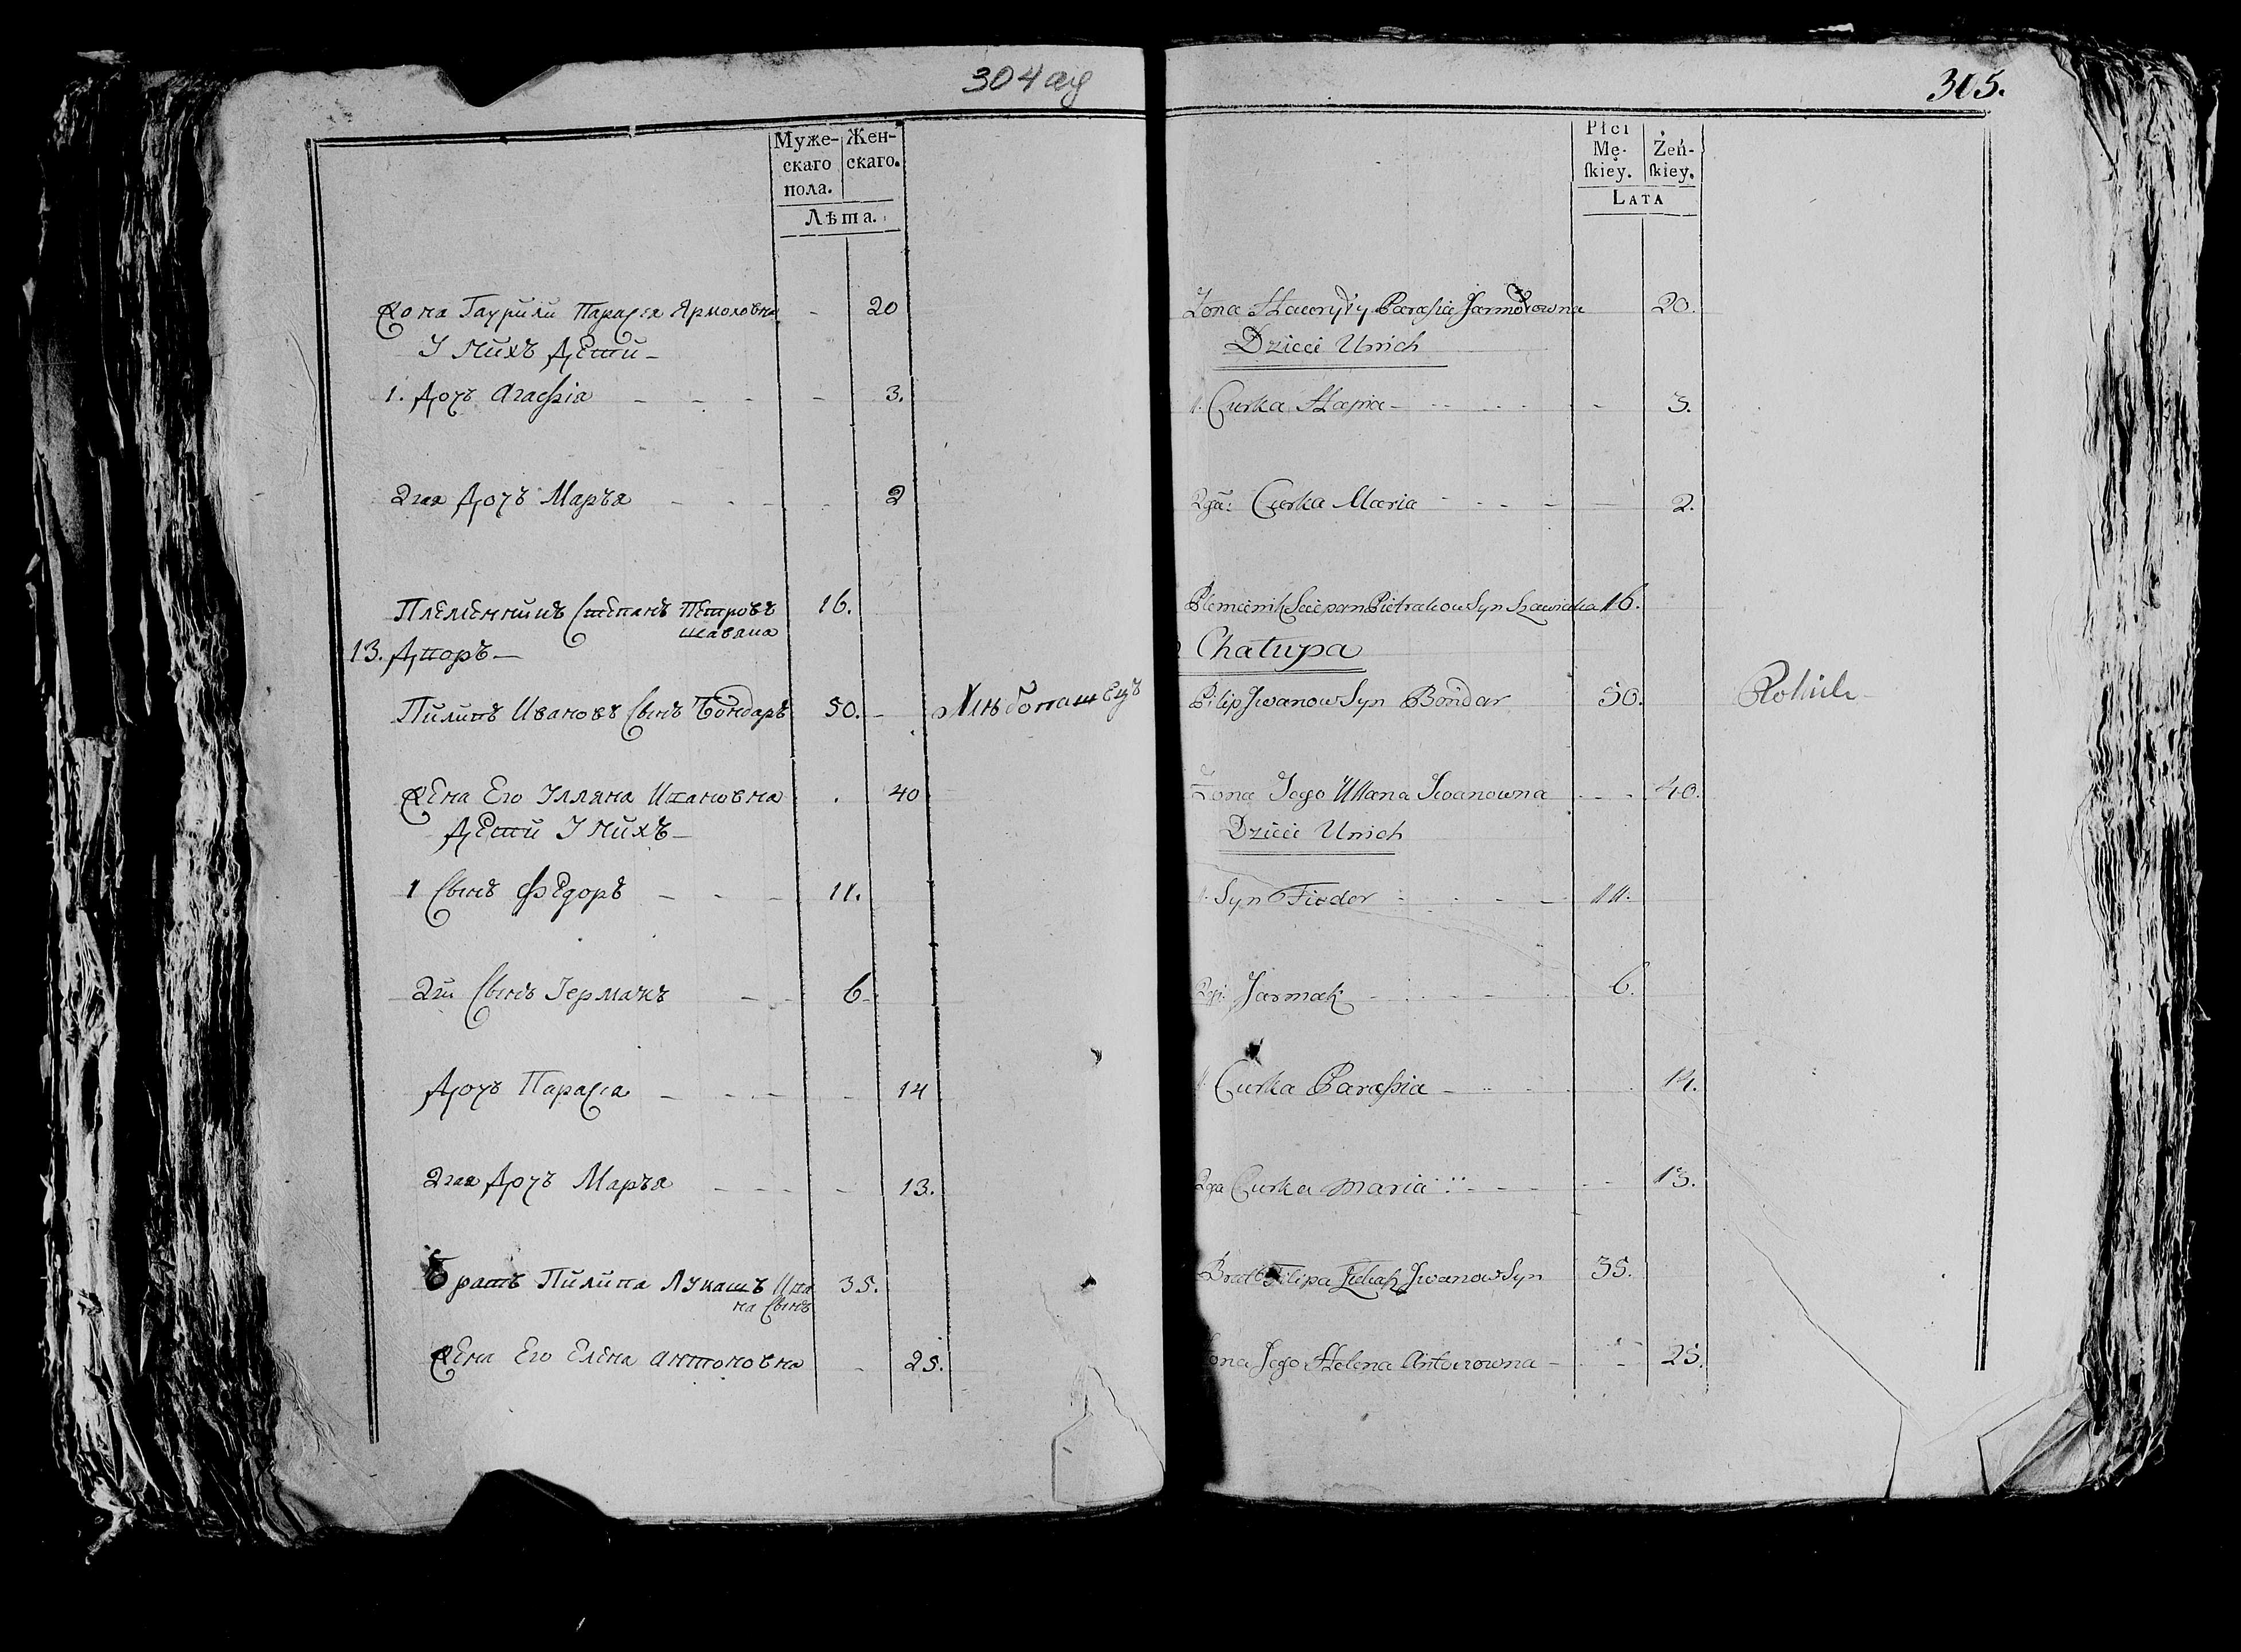 304 об
Муже- Жен-
скаго скаго.
пола.
Лѣта.
Жона Гаурили Парася Ярмоловна - 20
У нихъ дети -
1. Дочъ Агафія - 3.
2гая Дочъ Маръя - 2
Племенникъ Степанъ Петровъ 16.
13. Дворъ -
Пилипъ Ивановъ Сынъ Бондаръ 50. - Хлѣбопашецъ
Жена Его Улляна Ивановна 40
Дети У нихъ -
1 Сынъ Федоръ - 11.
2й Сынъ Iермакъ - 6
Дочъ Парася - 14
2гая Дочъ Маръя - 13.
Братъ Пилипа Лукашъ Ива 35.
на Сынъ
Жена Его Елена Антоновна 25.
305.
Płci
Mę- Żeń-
ſkiey. ſkiey.
LATA
Żona Hawryły Parasia Jarmołowna 20.
Dzieci Unich
1. Curka Hapia - 3.
2ga: Curka Maria - 2.
Plemienik Sciepan Pietrakow Syn 16.
Chatupa
Pilip Jwanow Syn Bondar 50. Rolnik
Żona Jego Ullana Jwanowna 40.
Dzieci Unich
1. Syn Fiedor - 11.
2gi Jarmak - 6.
1. Curka Parasia - 14.
2ga Curka Maria - 13.
Brat Filipa Łukasz Jwanow Syn 35.
Żona Jego Helena Antonowna - 25.